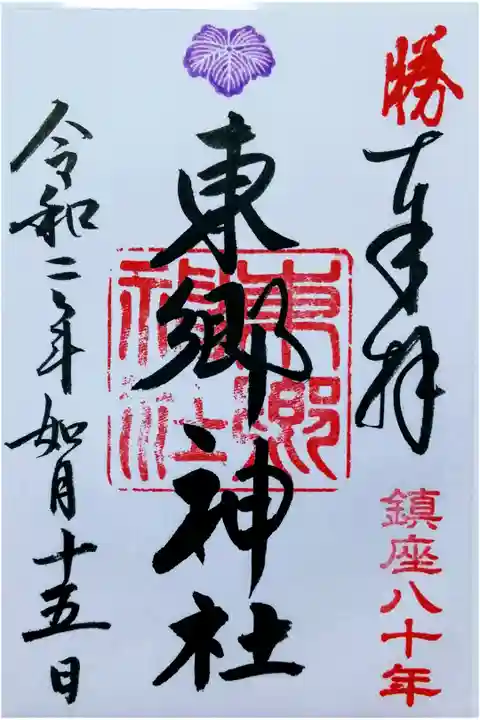 勝
奉拝
鎮座八十年
東郷神社
東郷
神社
令和二年如月十五日